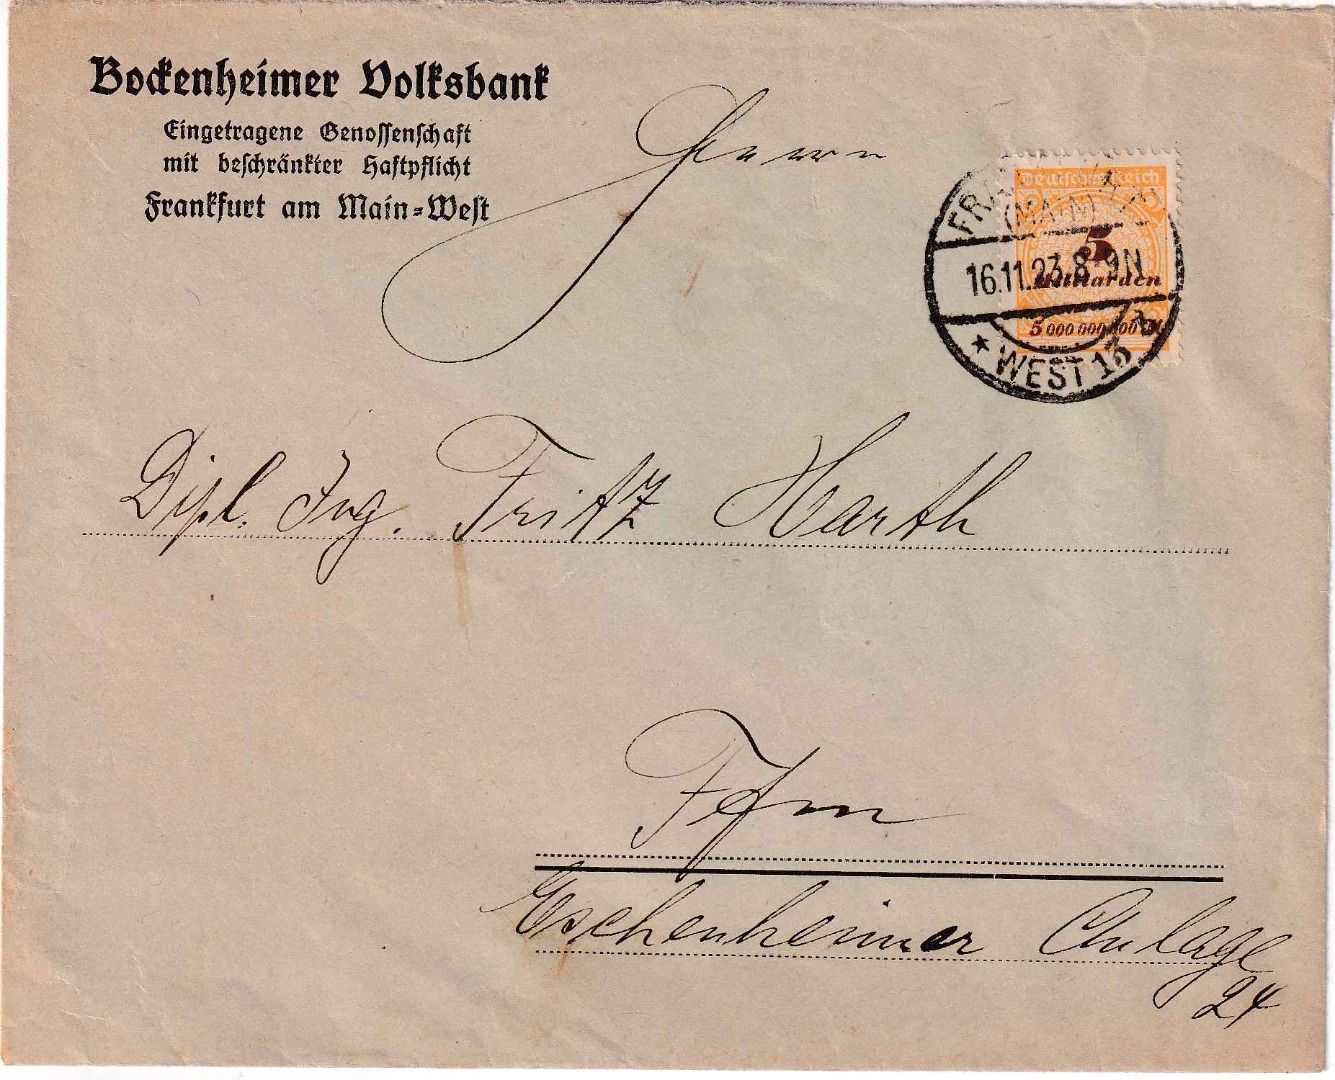 Bockenheimer Volksbank
Eingetragene Genossenschaft
mit beschränkter Haftpflicht
Frankfurt am Main-West
Herrn
Deutsches Reich
5
Milliarden
5 000 000 000 M
(MAIN)
16.11.23. 8-9N
* WEST 13
Dipl. Ing. Fritz Harth
Ffm
Eschenheimer Anlage
24